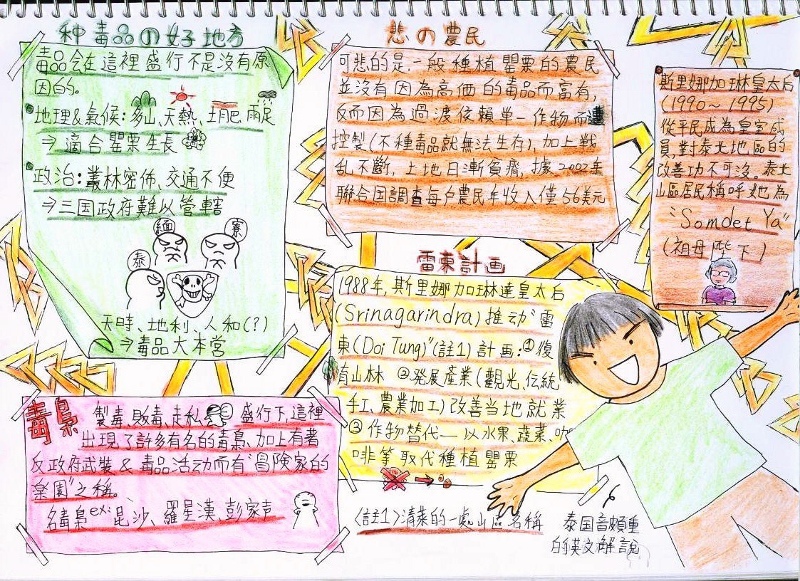 种毒品の好地方
毒品会在這裡盛行不是沒有原
因的。
地理&氣候:多山、天熱、土肥、雨足
⇒適合罌粟生長
政治:叢林密佈、交通不便
⇒三国政府難以管轄
緬
寮
泰
天時、地利、人和(?)
⇒毒品大本営
毒梟
製毒、販毒、走私 盛行下,這裡
出現了許多有名的毒梟,加上有著
反政府武裝&毒品活動而有"冒険家的
楽園"之稱。
名毒梟ex:昆沙、羅星漢、彭家声
悲の農民
可悲的是,一般種植罌粟的農民
並沒有因為高価的毒品而富有,
反而因為過渡依賴單一作物而遭
控製(不種毒品就無法生存),加上戰
乱不斷,土地日漸貧瘠,據2002年
聯合国調查每户農民年收入僅56美元
雷東計画
1988年,斯里娜加琳達皇太后
(Srinagarindra)推动"雷
東(Doi Tung)"(註1)計画:①復
育山林 ②発展產業(觀光、伝統
手工、農業加工)改善当地就業
③作物替代—以水果、蔬菜、咖
啡等取代種植罌粟
(註1)清萊的一處山區名稱
斯里娜加琳皇太后
(1990~1995)
從平民成為皇室成
員,對泰北地區的
改善功不可沒,泰北
山區居民稱呼她為
"Somdet Ya"
(祖母陛下)
泰国音頗重
的英文解說